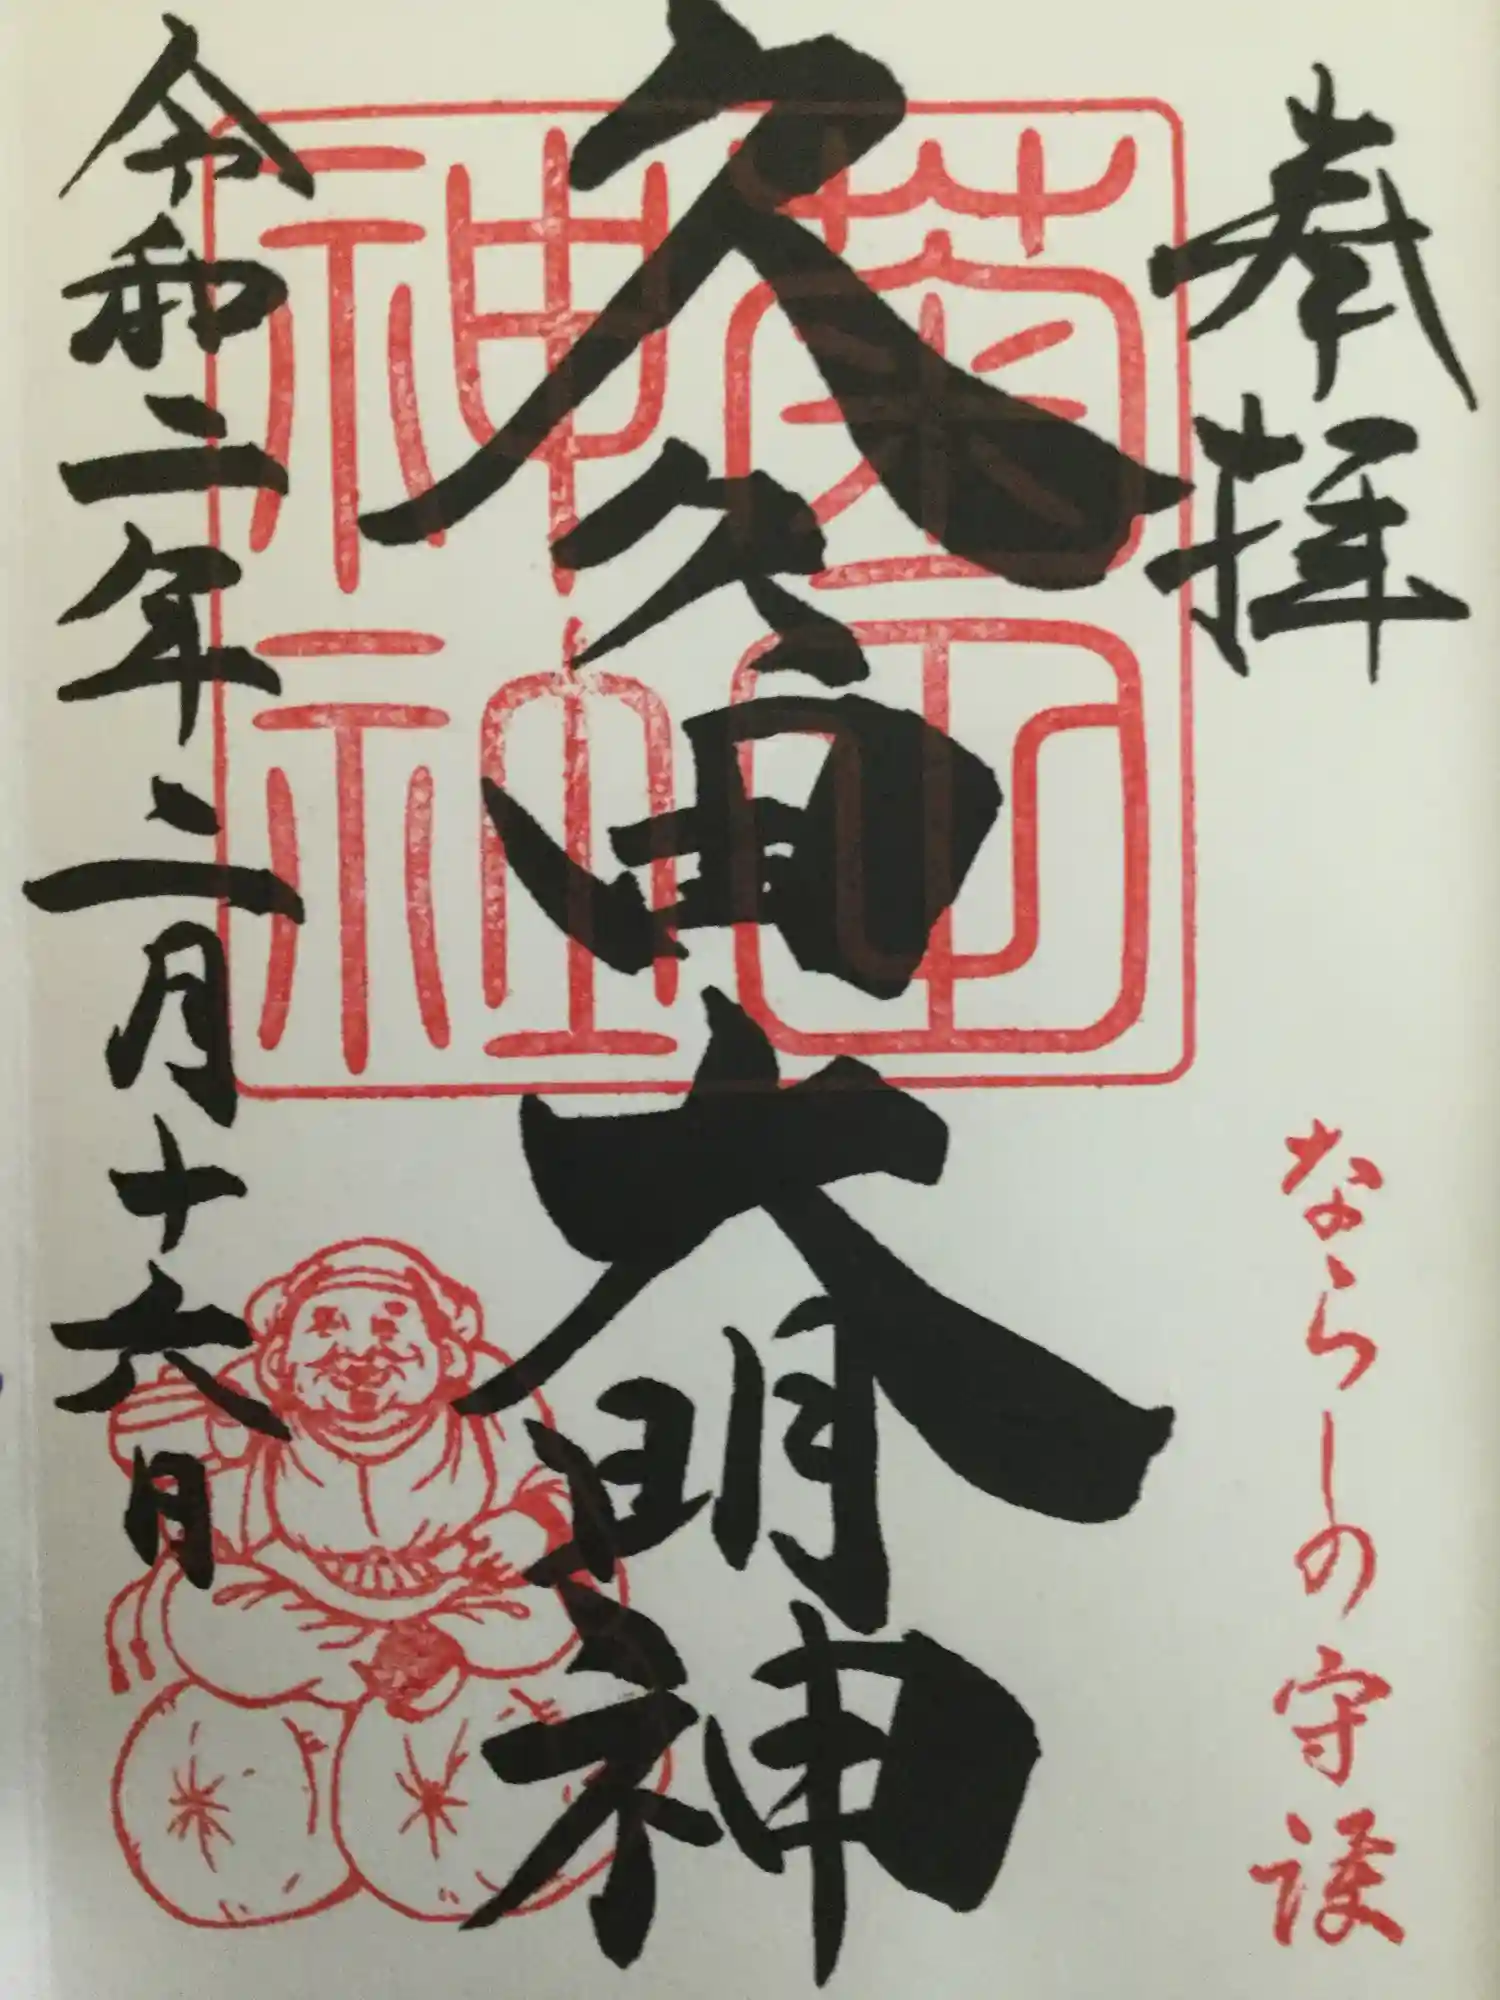 奉拝
ならしの守護
久久田大明神
菊田
神社
令和二年二月十六日